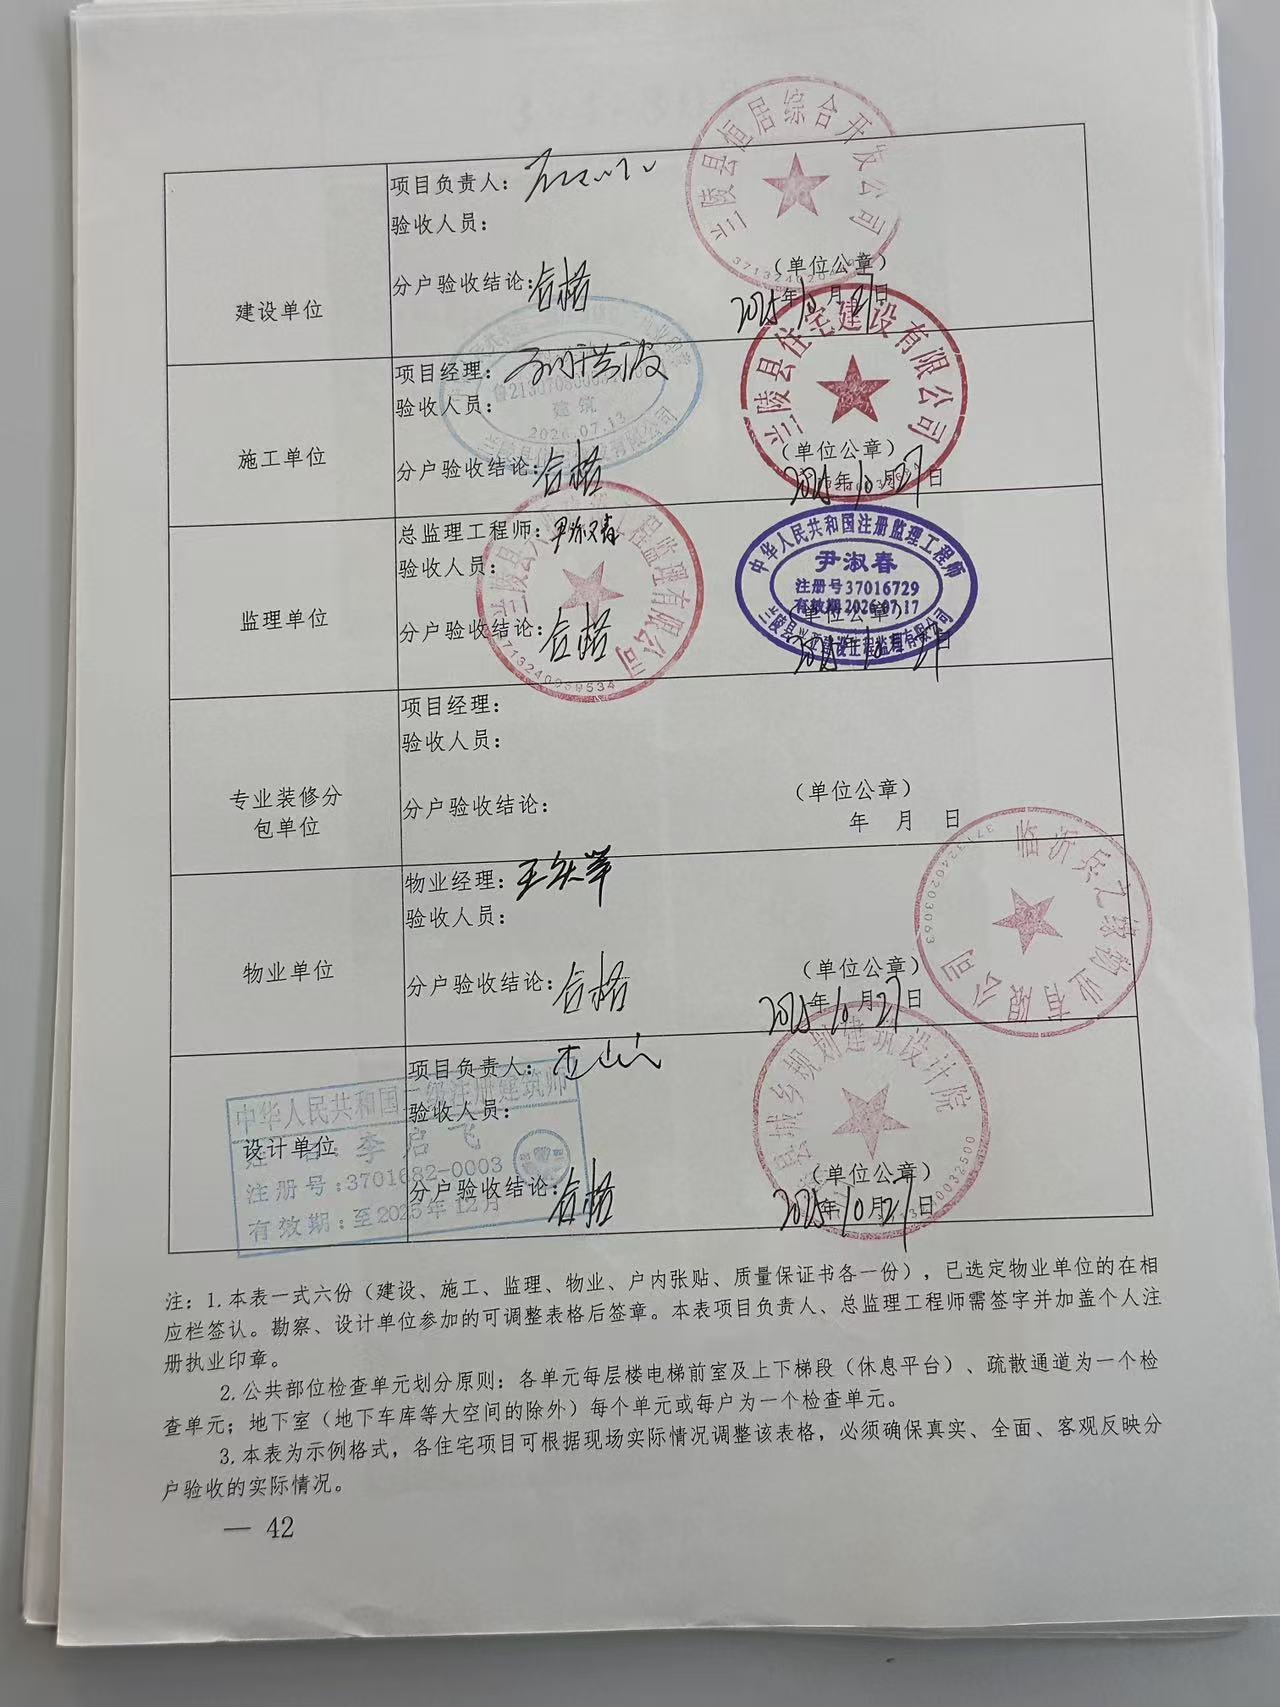 兰陵县恒居综合开发公司
项目负责人：
验收人员：
分户验收结论：合格
（单位公章）
建设单位
2025年10月27日
兰陵县住宅建设有限公司
项目经理：
验收人员：
建筑
2026.07.13
施工单位
分户验收结论：合格
（单位公章）
2025年10月27日
总监理工程师：尹淑春
验收人员：
工程监理有限公司
3713240039534
中华人民共和国注册监理工程师
尹淑春
注册号37016729
有效期2026.07.17
兰陵县兴亚建设工程监理有限公司
监理单位
分户验收结论：合格
（单位公章）
2025年10月27日
项目经理：
验收人员：
专业装修分
包单位
分户验收结论：
（单位公章）
年 月 日
物业经理：
验收人员：
临沂兵之缘物业有限公司
3713240203063
物业单位
分户验收结论：合格
（单位公章）
2025年10月27日
项目负责人：
验收人员：
县城乡规划建筑设计院
中华人民共和国二级注册建筑师
姓 名：李启飞
注册号：3701682-0003
有效期：至2025年12月
设计单位
分户验收结论：合格
（单位公章）
2025年10月27日
注：1.本表一式六份（建设、施工、监理、物业、户内张贴、质量保证书各一份），已选定物业单位的在相
应栏签认。勘察、设计单位参加的可调整表格后签章。本表项目负责人、总监理工程师需签字并加盖个人注
册执业印章。
2.公共部位检查单元划分原则：各单元每层楼电梯前室及上下梯段（休息平台）、疏散通道为一个检
查单元；地下室（地下车库等大空间的除外）每个单元或每户为一个检查单元。
3.本表为示例格式，各住宅项目可根据现场实际情况调整该表格，必须确保真实、全面、客观反映分
户验收的实际情况。
— 42